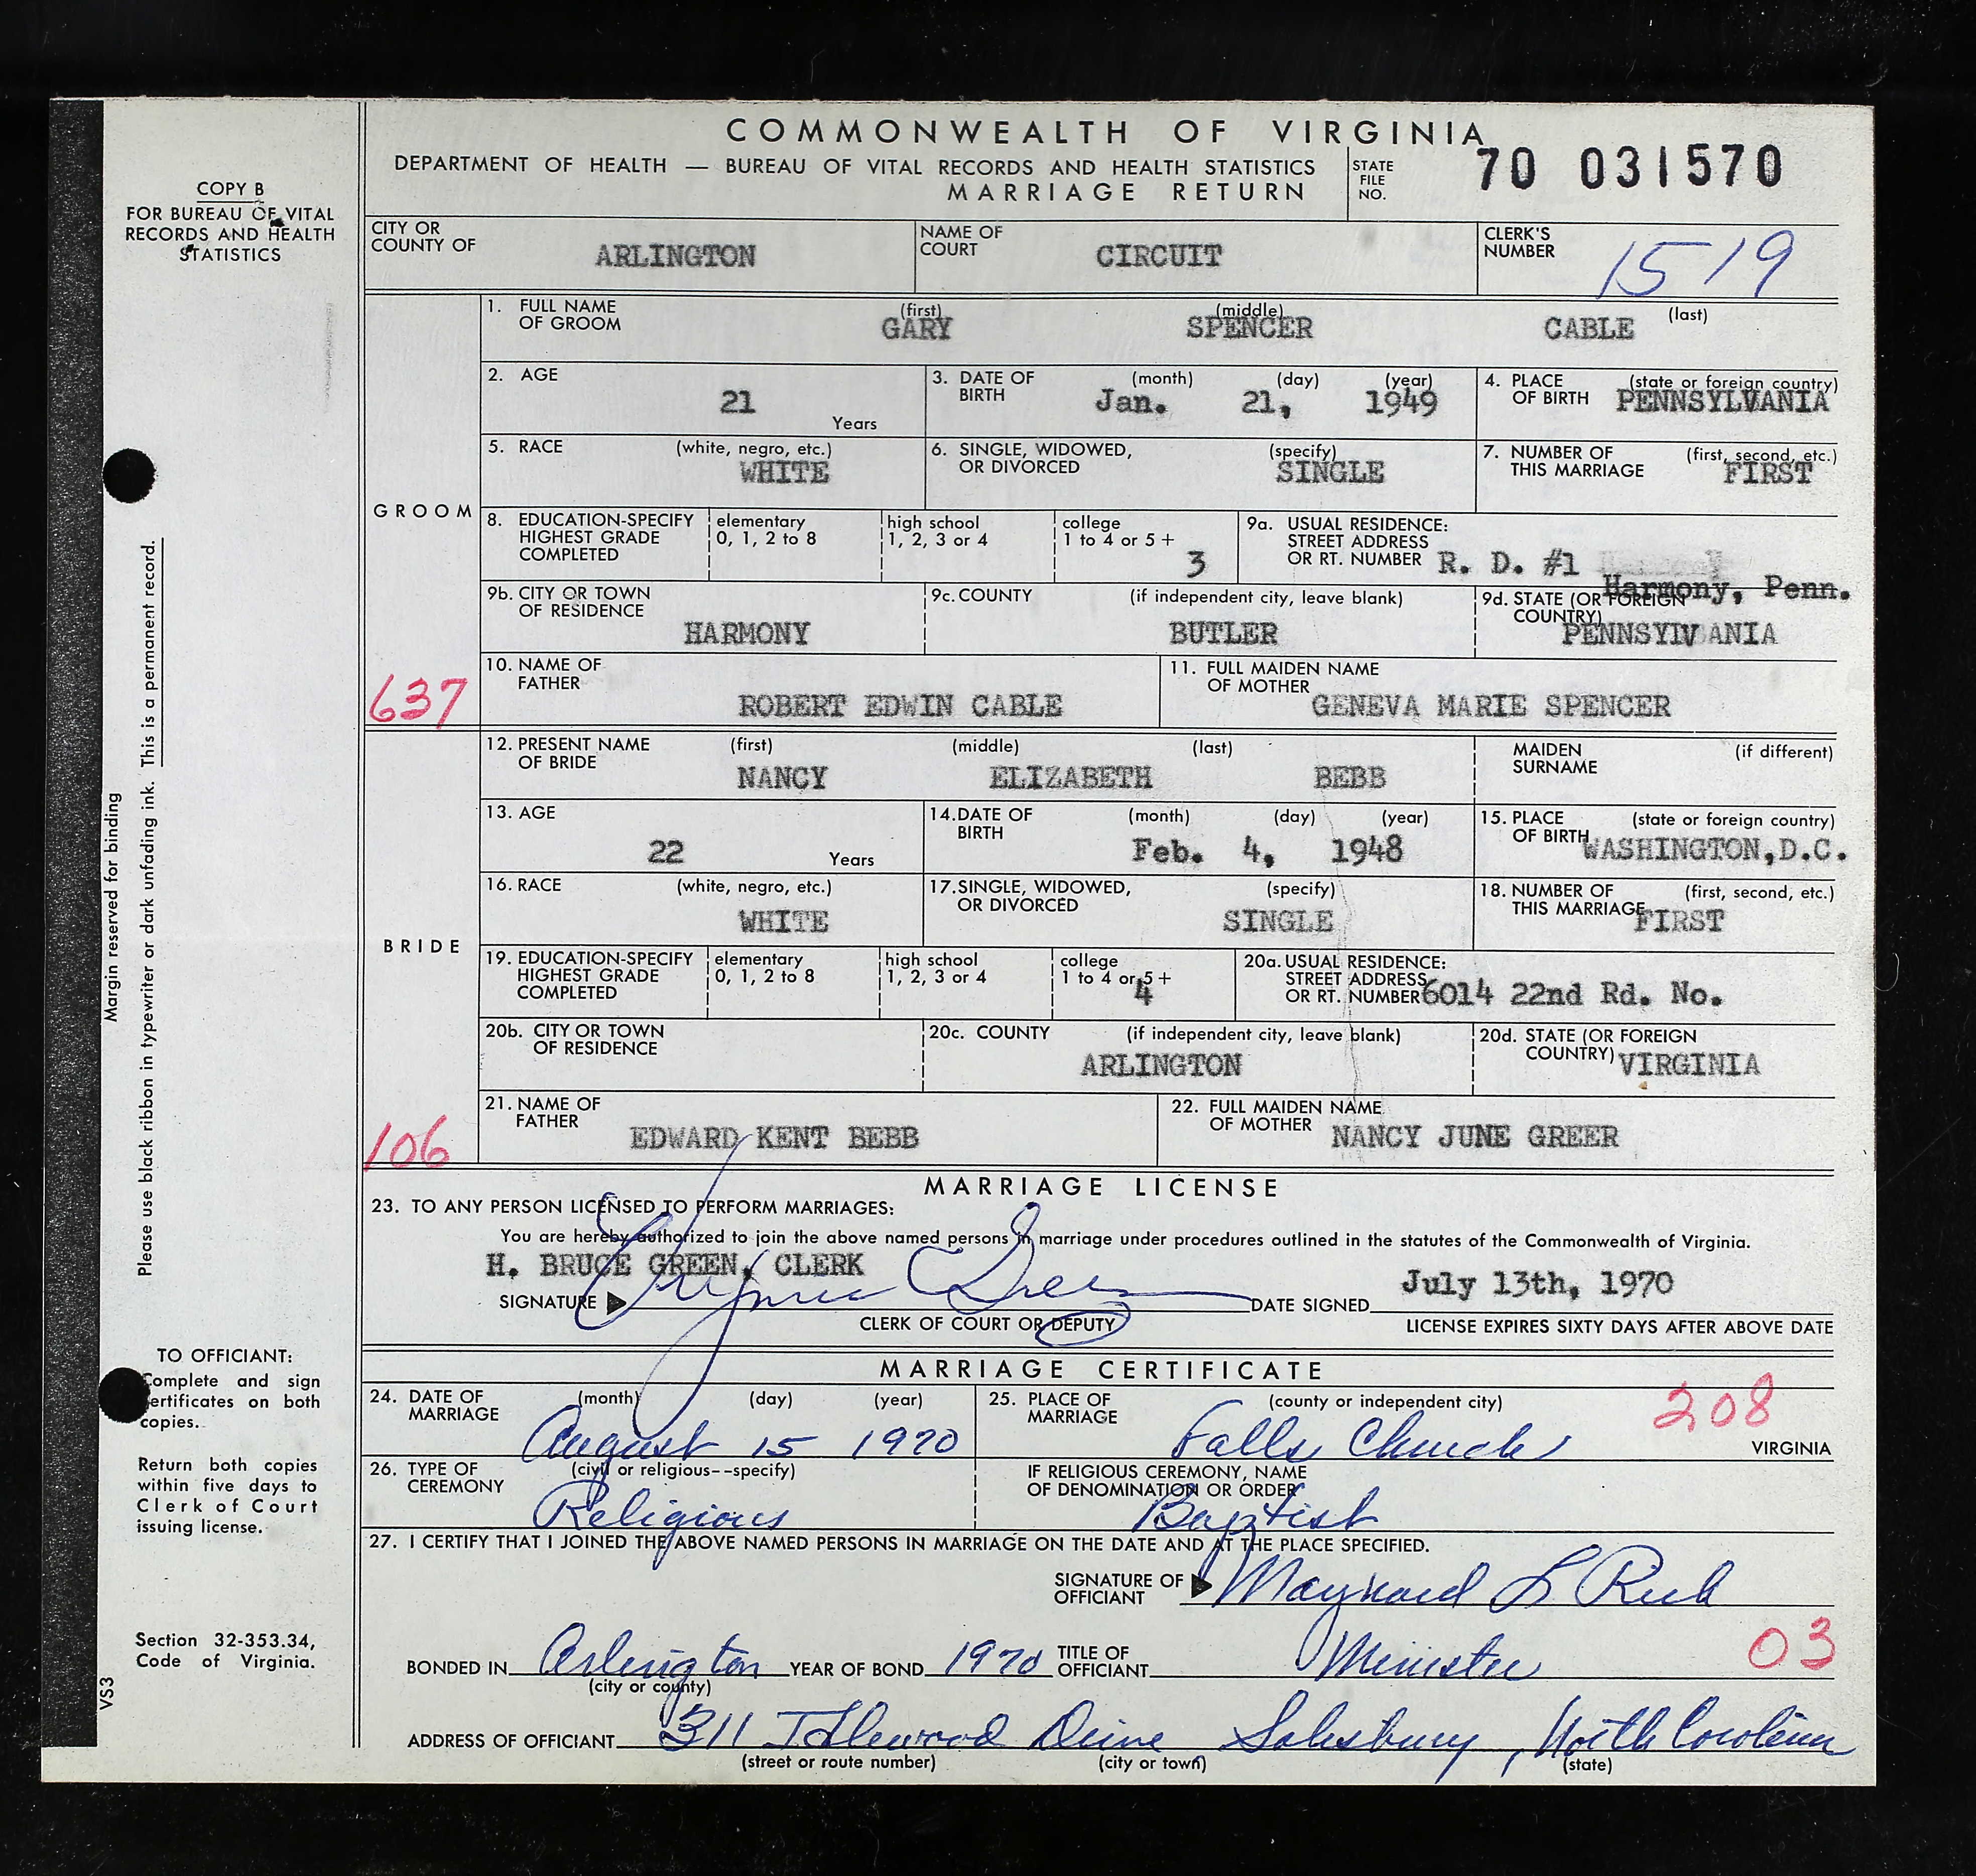 COMMONWEALTH OF VIRGINIA
DEPARTMENT OF HEALTH — BUREAU OF VITAL RECORDS AND HEALTH STATISTICS
MARRIAGE RETURN
STATE FILE NO. 70 031570
COPY B
FOR BUREAU OF VITAL
RECORDS AND HEALTH
STATISTICS
CITY OR COUNTY OF ARLINGTON
NAME OF COURT CIRCUIT
CLERK'S NUMBER 1519
GROOM
1. FULL NAME OF GROOM (first) GARY (middle) SPENCER (last) CABLE
2. AGE 21 Years
3. DATE OF BIRTH (month) (day) (year) Jan. 21, 1949
4. PLACE OF BIRTH (state or foreign country) PENNSYLVANIA
5. RACE (white, negro, etc.) WHITE
6. SINGLE, WIDOWED, OR DIVORCED (specify) SINGLE
7. NUMBER OF THIS MARRIAGE (first, second, etc.) FIRST
8. EDUCATION-SPECIFY HIGHEST GRADE COMPLETED
elementary 0, 1, 2 to 8
high school 1, 2, 3 or 4
college 1 to 4 or 5 + 3
9a. USUAL RESIDENCE: STREET ADDRESS OR RT. NUMBER R. D. #1
Harmony, Penn.
9b. CITY OR TOWN OF RESIDENCE HARMONY
9c. COUNTY (if independent city, leave blank) BUTLER
9d. STATE (OR FOREIGN COUNTRY) PENNSYLVANIA
637
10. NAME OF FATHER ROBERT EDWIN CABLE
11. FULL MAIDEN NAME OF MOTHER GENEVA MARIE SPENCER
BRIDE
12. PRESENT NAME OF BRIDE (first) NANCY (middle) ELIZABETH (last) BEBB
MAIDEN SURNAME (if different)
13. AGE 22 Years
14. DATE OF BIRTH (month) (day) (year) Feb. 4, 1948
15. PLACE OF BIRTH (state or foreign country) WASHINGTON, D.C.
16. RACE (white, negro, etc.) WHITE
17. SINGLE, WIDOWED, OR DIVORCED (specify) SINGLE
18. NUMBER OF THIS MARRIAGE (first, second, etc.) FIRST
19. EDUCATION-SPECIFY HIGHEST GRADE COMPLETED
elementary 0, 1, 2 to 8
high school 1, 2, 3 or 4
college 1 to 4 or 5 + 4
20a. USUAL RESIDENCE: STREET ADDRESS OR RT. NUMBER 6014 22nd Rd. No.
20b. CITY OR TOWN OF RESIDENCE
20c. COUNTY (if independent city, leave blank) ARLINGTON
20d. STATE (OR FOREIGN COUNTRY) VIRGINIA
106
21. NAME OF FATHER EDWARD KENT BEBB
22. FULL MAIDEN NAME OF MOTHER NANCY JUNE GREER
MARRIAGE LICENSE
23. TO ANY PERSON LICENSED TO PERFORM MARRIAGES:
You are hereby authorized to join the above named persons in marriage under procedures outlined in the statutes of the Commonwealth of Virginia.
H. BRUCE GREEN, CLERK
SIGNATURE
DATE SIGNED July 13th, 1970
CLERK OF COURT OR DEPUTY
LICENSE EXPIRES SIXTY DAYS AFTER ABOVE DATE
MARRIAGE CERTIFICATE
24. DATE OF MARRIAGE (month) (day) (year) August 15 1970
25. PLACE OF MARRIAGE (county or independent city) Falls Church VIRGINIA
208
26. TYPE OF CEREMONY (civil or religious--specify) Religious
IF RELIGIOUS CEREMONY, NAME OF DENOMINATION OR ORDER Baptist
27. I CERTIFY THAT I JOINED THE ABOVE NAMED PERSONS IN MARRIAGE ON THE DATE AND AT THE PLACE SPECIFIED.
SIGNATURE OF OFFICIANT Maynard L Rich
BONDED IN Arlington (city or county) YEAR OF BOND 1970 TITLE OF OFFICIANT Minister
03
ADDRESS OF OFFICIANT 311 Idlewood Drive Salisbury, North Carolina
(street or route number) (city or town) (state)
Margin reserved for binding
Please use black ribbon in typewriter or dark unfading ink. This is a permanent record.
TO OFFICIANT:
Complete and sign
certificates on both
copies.
Return both copies
within five days to
Clerk of Court
issuing license.
Section 32-353.34,
Code of Virginia.
VS3